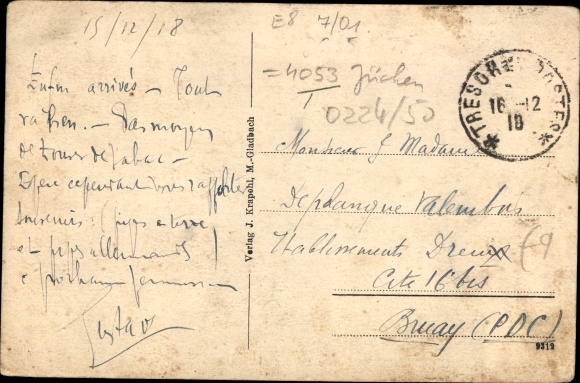 15/12/18
Enfin arrivés – Tout
va bien. – Pas moyen
de trouver de tabac –
cependant vous rapporter
souvenirs : (pipes
et pipes allemandes)
à prochaine permission
Gustav
Verlag J. Krapohl, M.-Gladbach
E8 7/01
=4053 Jüchen
0224/50
TRESOR ET POSTES
16 -12
18
Monsieur & Madame
Deplanque Valembois
Etablissements Dreux
Cité 16 bis
Bruay (P.D.C)
9312